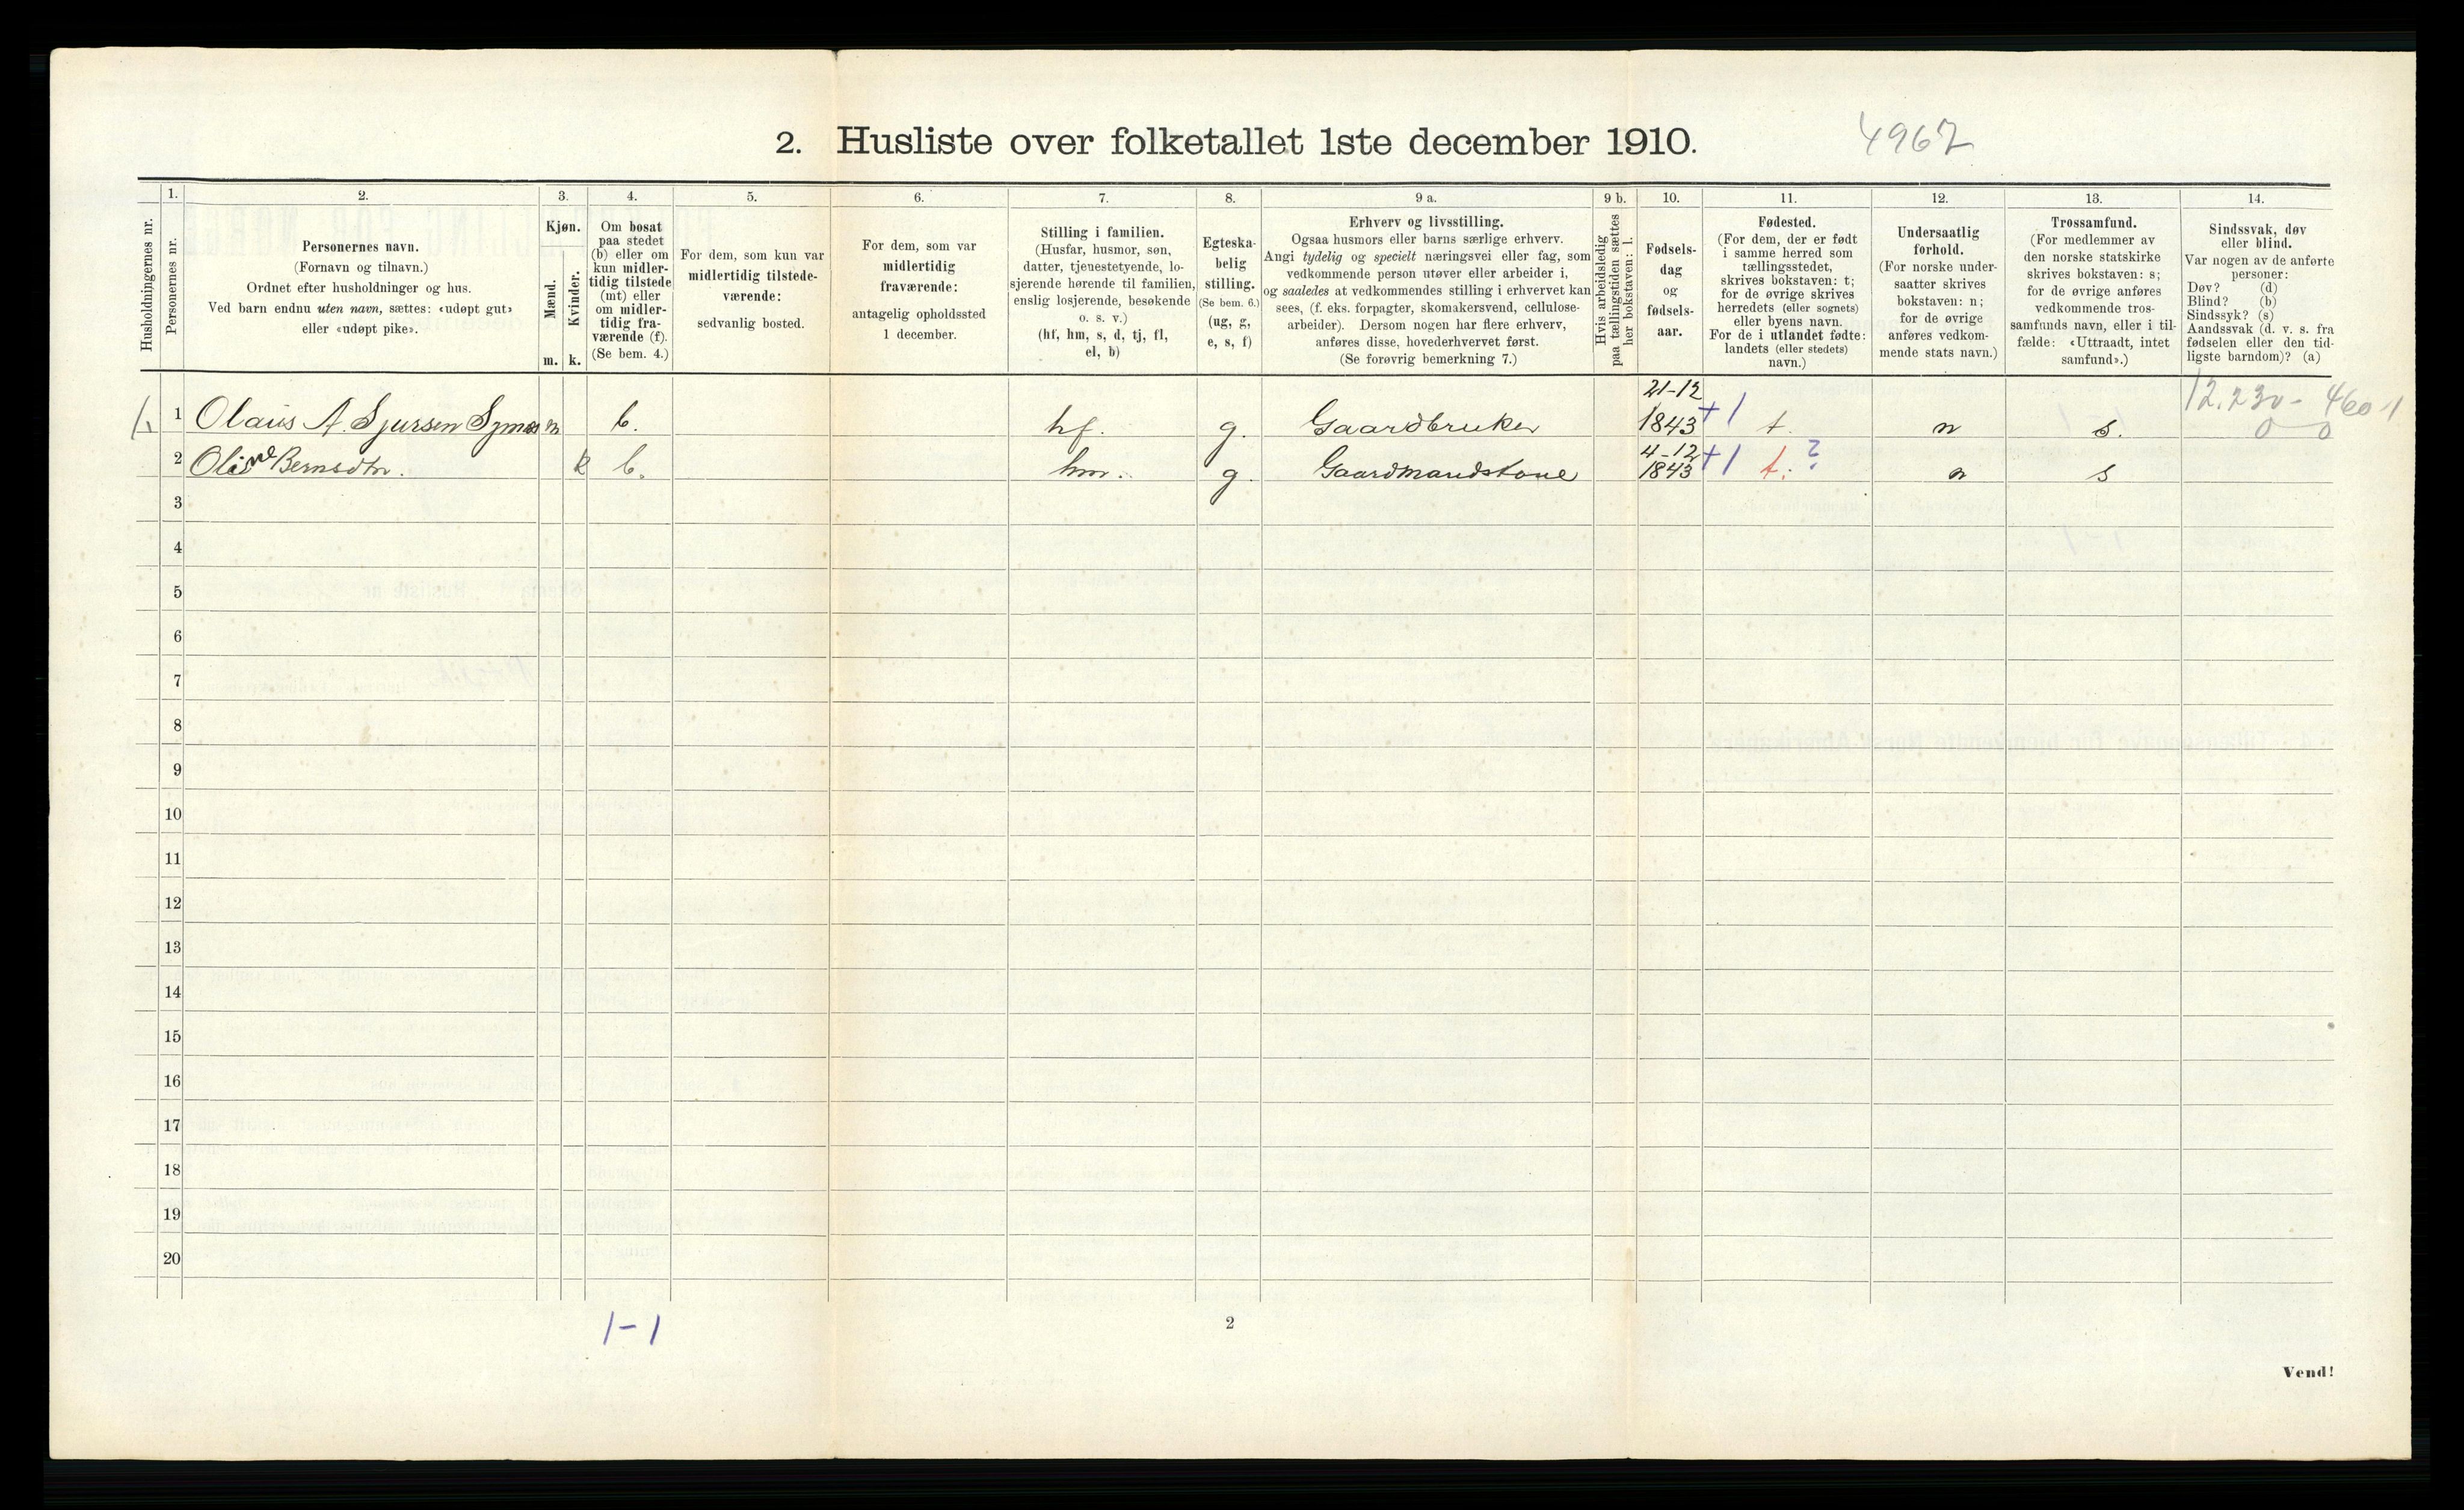 2. Husliste over folketallet 1ste december 1910.
4967
Husholdningernes nr.
1.
Personernes nr.
2.
Personernes navn.
(Fornavn og tilnavn.)
Ordnet efter husholdninger og hus.
Ved barn endnu uten navn, sættes: «udøpt gut»
eller «udøpt pike».
3.
Kjøn.
Mænd.
m.
Kvinder.
k.
4.
Om bosat
paa stedet
(b) eller om
kun midler-
tidig tilstede
(mt) eller
om midler-
tidig fra-
værende (f).
(Se bem. 4.)
5.
For dem, som kun var
midlertidig tilstede-
værende:
sedvanlig bosted.
6.
For dem, som var
midlertidig
fraværende:
antagelig opholdssted
1 december.
7.
Stilling i familien.
(Husfar, husmor, søn,
datter, tjenestetyende, lo-
sjerende hørende til familien,
enslig losjerende, besøkende
o. s. v.)
(hf, hm, s, d, tj, fl,
el, b)
8.
Egteska-
belig
stilling.
(Se bem. 6.)
(ug, g,
e, s, f)
9 a.
Erhverv og livsstilling.
Ogsaa husmors eller barns særlige erhverv.
Angi tydelig og specielt næringsvei eller fag, som
vedkommende person utøver eller arbeider i,
og saaledes at vedkommendes stilling i erhvervet kan
sees, (f. eks. forpagter, skomakersvend, cellulose-
arbeider). Dersom nogen har flere erhverv,
anføres disse, hovederhvervet først.
(Se forøvrig bemerkning 7.)
9 b.
Hvis arbeidsledig
paa tællingstiden sættes
her bokstaven: l.
10.
Fødsels-
dag
og
fødsels-
aar.
11.
Fødested.
(For dem, der er født
i samme herred som
tællingsstedet,
skrives bokstaven: t;
for de øvrige skrives
herredets (eller sognets)
eller byens navn.
For de i utlandet fødte:
landets (eller stedets)
navn.)
12.
Undersaatlig
forhold.
(For norske under-
saatter skrives
bokstaven: n;
for de øvrige
anføres vedkom-
mende stats navn.)
13.
Trossamfund.
(For medlemmer av
den norske statskirke
skrives bokstaven: s;
for de øvrige anføres
vedkommende tros-
samfunds navn, eller i til-
fælde: «Uttraadt, intet
samfund».)
14.
Sindssvak, døv
eller blind.
Var nogen av de anførte
personer:
Døv? (d)
Blind? (b)
Sindssyk? (s)
Aandssvak (d. v. s. fra
fødselen eller den tid-
ligste barndom)? (a)
12.230 - 460-1
0 0
1 Olaus A. Sjursen m b. hf. g. Gaardbruker 21-12 1843 +1 t. n s.
2 Bernsdtr. k b. hm. g. Gaardmandskone 4-12 1843 +1 t. ? n s
3
4
5
6
7
8
9
10
11
12
13
14
15
16
17
18
19
20
1-1
2
Vend!